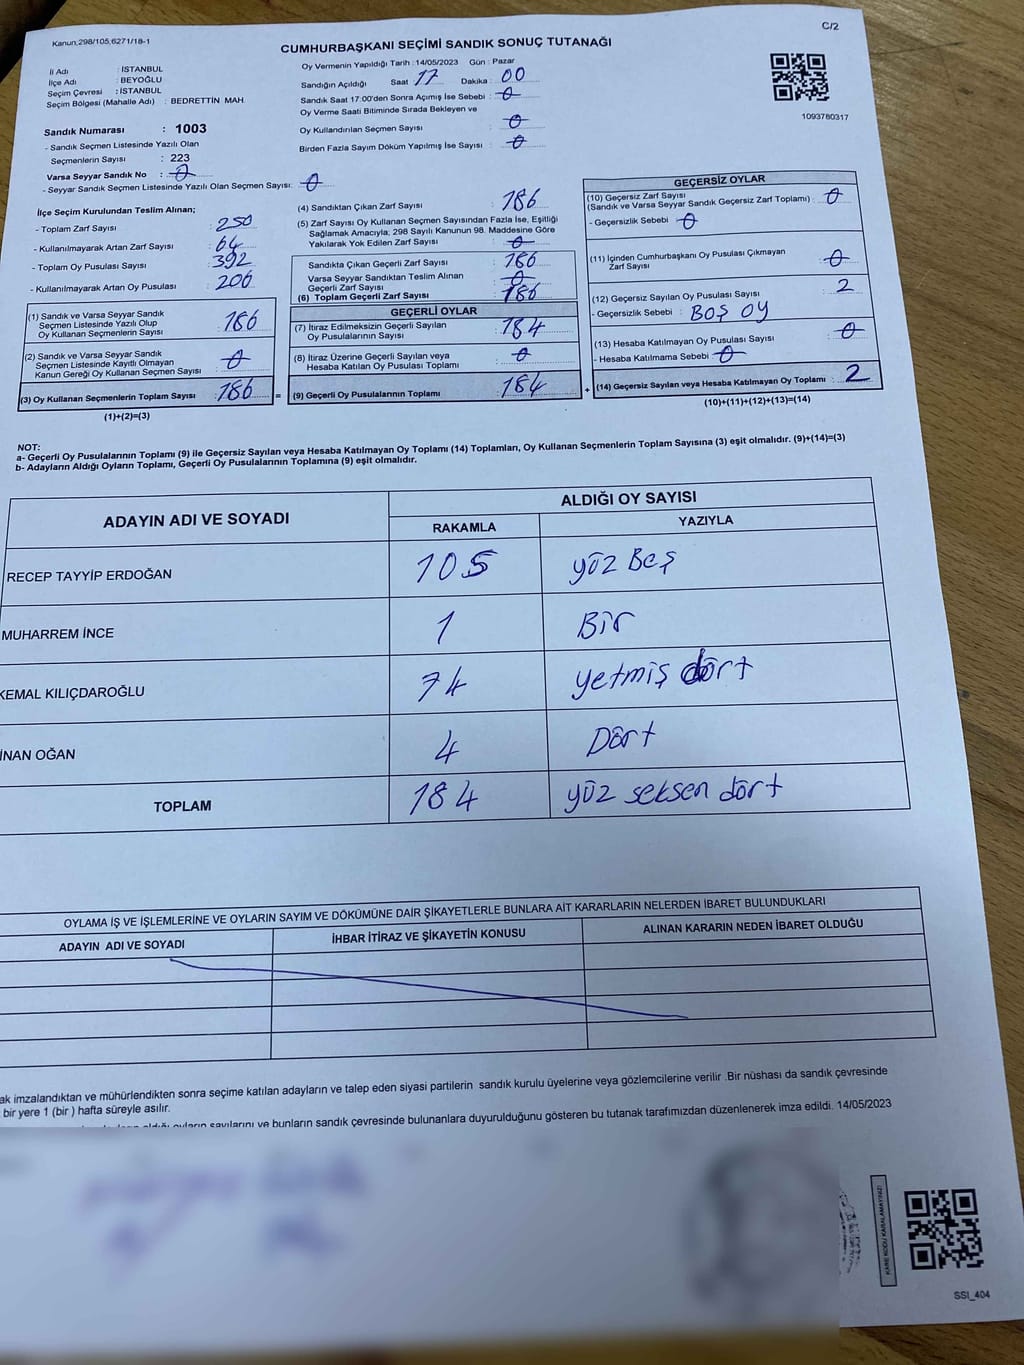 C/2
Kanun:298/105,6271/18-1
CUMHURBAŞKANI SEÇİMİ SANDIK SONUÇ TUTANAĞI
İl Adı : İSTANBUL
İlçe Adı : BEYOĞLU
Seçim Çevresi : İSTANBUL
Seçim Bölgesi (Mahalle Adı) : BEDRETTİN MAH
Sandık Numarası : 1003
- Sandık Seçmen Listesinde Yazılı Olan
Seçmenlerin Sayısı : 223
Varsa Seyyar Sandık No : 0
- Seyyar Sandık Seçmen Listesinde Yazılı Olan Seçmen Sayısı: 0
Oy Vermenin Yapıldığı Tarih :14/05/2023 Gün : Pazar
Sandığın Açıldığı Saat 17 Dakika : 00
Sandık Saat 17:00'den Sonra Açımış İse Sebebi : 0
Oy Verme Saati Bitiminde Sırada Bekleyen ve
Oy Kullandırılan Seçmen Sayısı : 0
Birden Fazla Sayım Döküm Yapılmış İse Sayısı : 0
1093780317
İlçe Seçim Kurulundan Teslim Alınan;
- Toplam Zarf Sayısı : 250
- Kullanılmayarak Artan Zarf Sayısı : 64
- Toplam Oy Pusulası Sayısı : 392
- Kullanılmayarak Artan Oy Pusulası : 206
(1) Sandık ve Varsa Seyyar Sandık
Seçmen Listesinde Yazılı Olup
Oy Kullanan Seçmenlerin Sayısı : 186
(2) Sandık ve Varsa Seyyar Sandık
Seçmen Listesinde Kayıtlı Olmayan
Kanun Gereği Oy Kullanan Seçmen Sayısı : 0
(3) Oy Kullanan Seçmenlerin Toplam Sayısı : 186
(1)+(2)=(3)
(4) Sandıktan Çıkan Zarf Sayısı : 186
(5) Zarf Sayısı Oy Kullanan Seçmen Sayısından Fazla İse, Eşitliği
Sağlamak Amacıyla; 298 Sayılı Kanunun 98. Maddesine Göre
Yakılarak Yok Edilen Zarf Sayısı : 0
Sandıkta Çıkan Geçerli Zarf Sayısı : 186
Varsa Seyyar Sandıktan Teslim Alınan
Geçerli Zarf Sayısı : 0
(6) Toplam Geçerli Zarf Sayısı : 186
GEÇERLİ OYLAR
(7) İtiraz Edilmeksizin Geçerli Sayılan
Oy Pusulalarının Sayısı : 184
(8) İtiraz Üzerine Geçerli Sayılan veya
Hesaba Katılan Oy Pusulası Toplamı : 0
= (9) Geçerli Oy Pusulalarının Toplamı : 184
GEÇERSİZ OYLAR
(10) Geçersiz Zarf Sayısı
(Sandık ve Varsa Seyyar Sandık Geçersiz Zarf Toplamı) : 0
- Geçersizlik Sebebi : 0
(11) İçinden Cumhurbaşkanı Oy Pusulası Çıkmayan
Zarf Sayısı : 0
(12) Geçersiz Sayılan Oy Pusulası Sayısı : 2
- Geçersizlik Sebebi : BOŞ OY
(13) Hesaba Katılmayan Oy Pusulası Sayısı : 0
- Hesaba Katılmama Sebebi : 0
+ (14) Geçersiz Sayılan veya Hesaba Katılmayan Oy Toplamı : 2
(10)+(11)+(12)+(13)=(14)
NOT:
a- Geçerli Oy Pusulalarının Toplamı (9) ile Geçersiz Sayılan veya Hesaba Katılmayan Oy Toplamı (14) Toplamları, Oy Kullanan Seçmenlerin Toplam Sayısına (3) eşit olmalıdır. (9)+(14)=(3)
b- Adayların Aldığı Oyların Toplamı, Geçerli Oy Pusulalarının Toplamına (9) eşit olmalıdır.
ADAYIN ADI VE SOYADI
ALDIĞI OY SAYISI
RAKAMLA YAZIYLA
RECEP TAYYİP ERDOĞAN 105 yüz Beş
MUHARREM İNCE 1 Bir
KEMAL KILIÇDAROĞLU 74 yetmiş dört
İNAN OĞAN 4 Dört
TOPLAM 184 yüz seksen dört
OYLAMA İŞ VE İŞLEMLERİNE VE OYLARIN SAYIM VE DÖKÜMÜNE DAİR ŞİKAYETLERLE BUNLARA AİT KARARLARIN NELERDEN İBARET BULUNDUKLARI
ADAYIN ADI VE SOYADI İHBAR İTİRAZ VE ŞİKAYETİN KONUSU ALINAN KARARIN NEDEN İBARET OLDUĞU
ak imzalandıktan ve mühürlendikten sonra seçime katılan adayların ve talep eden siyasi partilerin sandık kurulu üyelerine veya gözlemcilerine verilir .Bir nüshası da sandık çevresinde
bir yere 1 (bir ) hafta süreyle asılır.
aldığı oyların sayılarını ve bunların sandık çevresinde bulunanlara duyurulduğunu gösteren bu tutanak tarafımızdan düzenlenerek imza edildi. 14/05/2023
KARE KODU KARALAMAYINIZ!
SSI_404